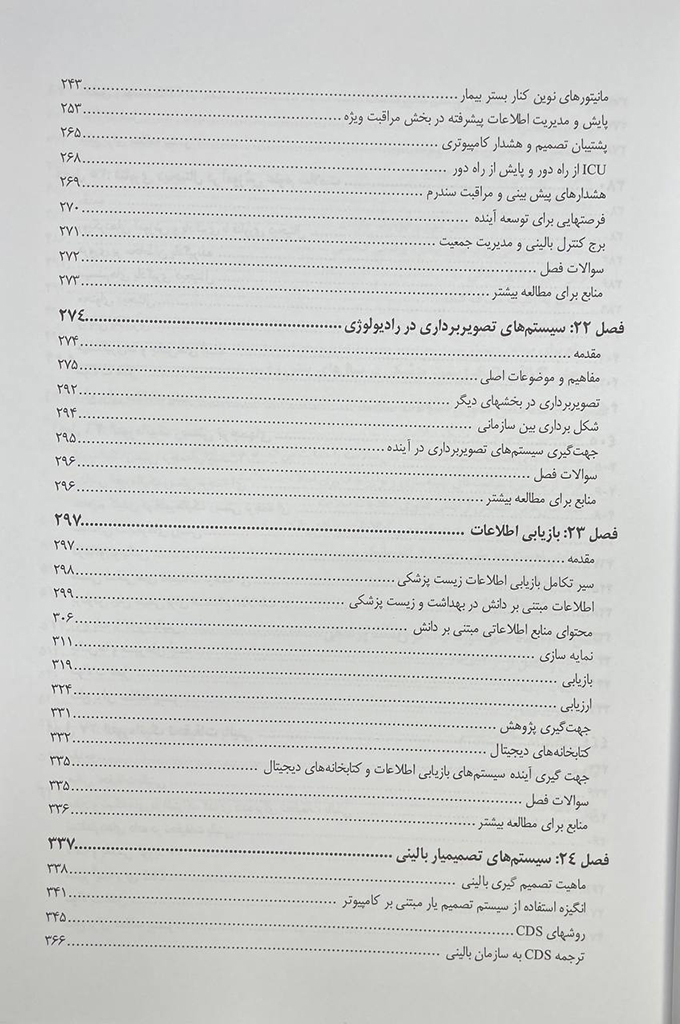 مانیتورهای نوین کنار بستر بیمار ........ ۲۴۳
پایش و مدیریت اطلاعات پیشرفته در بخش مراقبت ویژه ........ ۲۵۳
پشتیبان تصمیم و هشدار کامپیوتری ........ ۲۶۵
ICU از راه دور و پایش از راه دور ........ ۲۶۸
هشدارهای پیش بینی و مراقبت سندرم ........ ۲۶۹
فرصتهایی برای توسعه آینده ........ ۲۷۰
برج کنترل بالینی و مدیریت جمعیت ........ ۲۷۱
سوالات فصل ........ ۲۷۲
منابع برای مطالعه بیشتر ........ ۲۷۳
فصل ۲۲: سیستم‌های تصویربرداری در رادیولوژی ........ ۲۷۴
مقدمه ........ ۲۷۴
مفاهیم و موضوعات اصلی ........ ۲۷۵
تصویربرداری در بخشهای دیگر ........ ۲۹۲
شکل برداری بین سازمانی ........ ۲۹۴
جهت‌گیری سیستم‌های تصویربرداری در آینده ........ ۲۹۵
سوالات فصل ........ ۲۹۶
منابع برای مطالعه بیشتر ........ ۲۹۶
فصل ۲۳: بازیابی اطلاعات ........ ۲۹۷
مقدمه ........ ۲۹۷
سیر تکامل بازیابی اطلاعات زیست پزشکی ........ ۲۹۸
اطلاعات مبتنی بر دانش در بهداشت و زیست پزشکی ........ ۲۹۹
محتوای منابع اطلاعاتی مبتنی بر دانش ........ ۳۰۶
نمایه سازی ........ ۳۱۱
بازیابی ........ ۳۱۹
ارزیابی ........ ۳۲۴
جهت‌گیری پژوهش ........ ۳۳۱
کتابخانه‌های دیجیتال ........ ۳۳۲
جهت گیری آینده سیستم‌های بازیابی اطلاعات و کتابخانه‌های دیجیتال ........ ۳۳۵
سوالات فصل ........ ۳۳۵
منابع برای مطالعه بیشتر ........ ۳۳۶
فصل ۲۴: سیستم‌های تصمیمیار بالینی ........ ۳۳۷
ماهیت تصمیم گیری بالینی ........ ۳۳۸
انگیزه استفاده از سیستم تصمیم یار مبتنی بر کامپیوتر ........ ۳۴۱
روشهای CDS ........ ۳۴۵
ترجمه CDS به سازمان بالینی ........ ۳۶۶